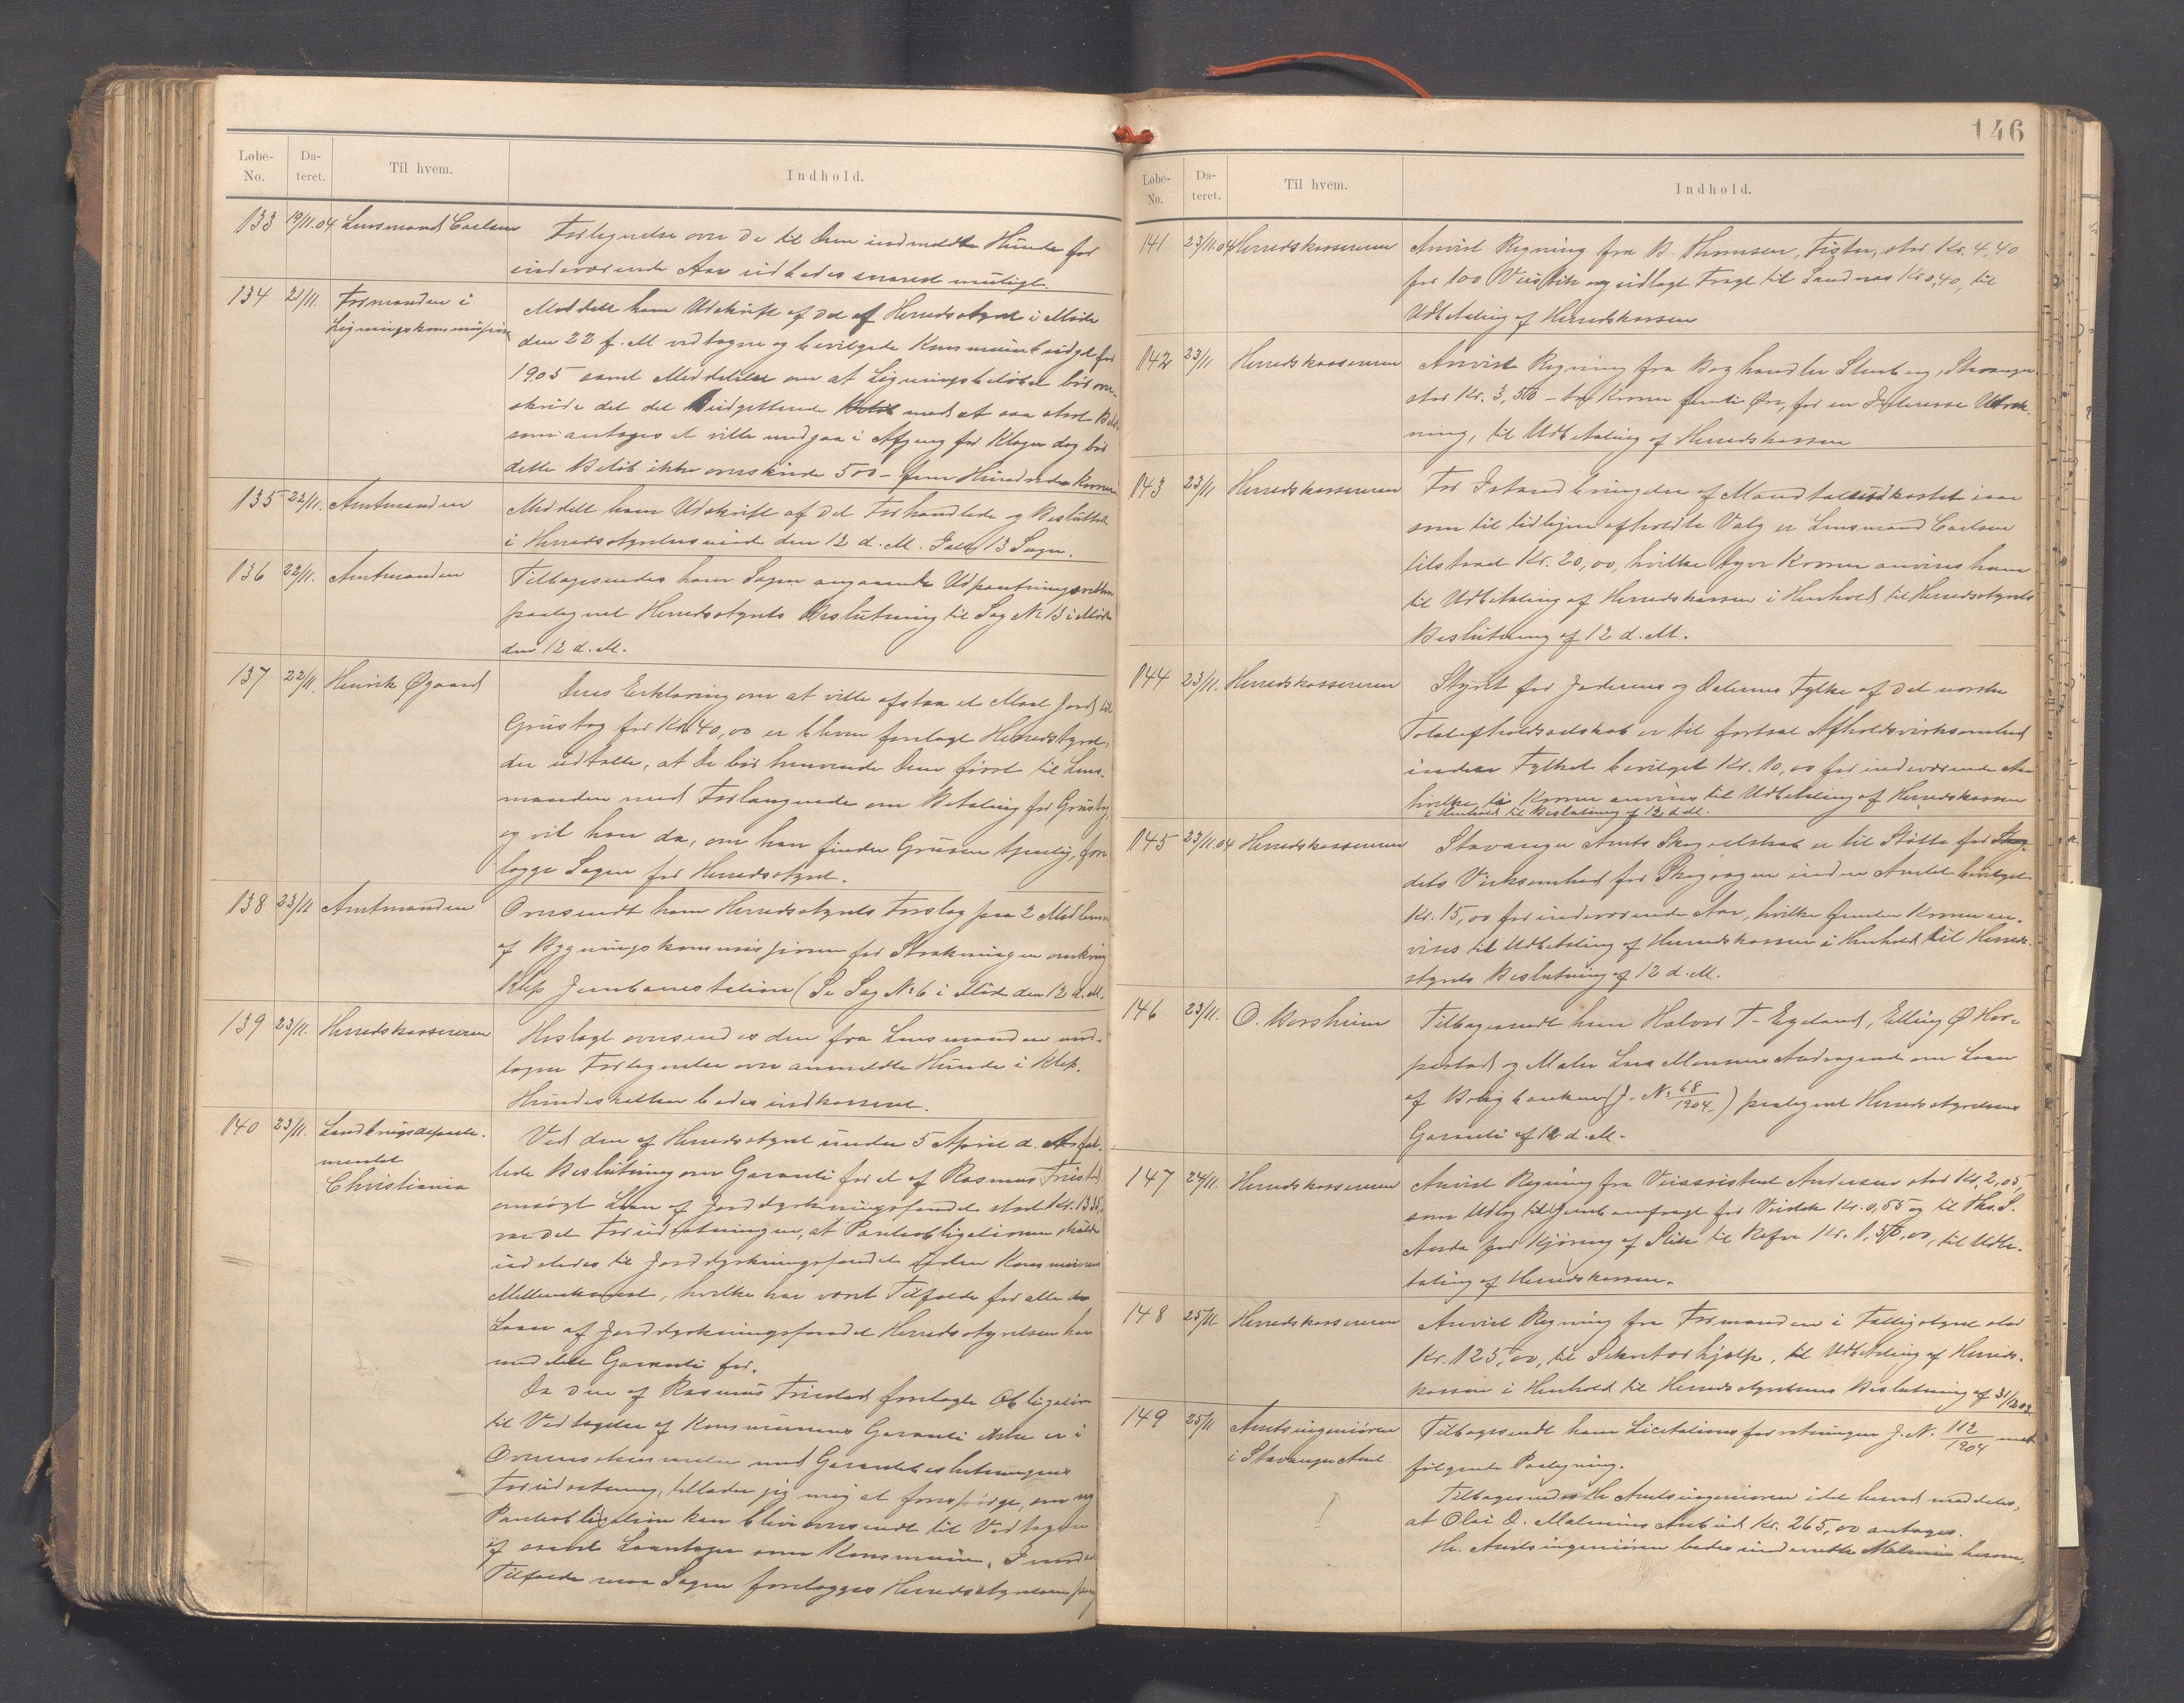 Løbe-No. Da-teret. Til hvem. Indhold.
133 19/11.04 Lensmand Carlsen Fortegnelse over de til Dem indmeldte Hunde for
indeværende Aar udbedes snarest muligt.
134 21/11. Formanden i Meddelt ham Udskrift af det af Herredsstyret i Møde
Ligningskommissionen den 22 f. M vedtagne og bevilgede Kommunebudget for
1905 samt Meddelelse om at Ligningsbeløbet bør over-
skride det det Budgetterede med et saa stort Beløb
som antages at ville medgaa i Afgang for Klager dog bør
dette Beløb ikke overskride 500 – fem Hundrede Kroner
135 22/11. Amtmanden Meddelt ham Udskrift af det Forhandlede og Besluttede
i Herredsstyrelsesmøde den 12 d. M. Ialt 13 Sager.
136 22/11. Amtmanden Tilbagesendes ham Sagen angaaende Udpantningsretten
paategnet Herredsstyrets Beslutning til Sag No 13 i Møde
den 12 d. M.
137 22/11. Henrik Øgaard Deres Erklæring om at ville afstaa et Maal Jord til
Grustag for Kr. 40,00 er bleven forelagt Herredsstyret,
der udtalte, at De bør henvende Dem først til Lens-
manden med Forlangende om Betaling for Grustag
og vil han da, om han finder Grusen tjenlig, fore-
lægge Sagen for Herredsstyret.
138 23/11 Amtmanden Oversendt ham Herredsstyrets Forslag paa 2 Medlemmer
af Bygningskommissionen for Strækningen omkring
Klep Jernbanestation (Se Sag No 6 i Møde den 12 d. M.
139 23/11. Herredskassereren Hoslagt oversendes den fra Lensmanden mod-
tagne Fortegnelse over anmeldte Hunde i Klep.
Hundeskatten bedes indkasseret.
140 23/11. Landbrugsdeparte- Ved den af Herredsstyret under 5 April d. A. fat-
mentet tede Beslutning om Garanti for et af Rasmus Friestad
Christiania ansøgt Laan af Jorddyrkningsfondet stort Kr.
var det Forudsætningen, at Panteobligationen skulde
udstedes til Jorddyrkningsfondet uden Kommunens
Mellemkomst, hvilket har været Tilfælde for alle de
Laan af Jorddyrkningsfondet Herredsstyrelsen har
meddelt Garanti for.
Da den af Rasmus Friestad forelagte Obligation
til Vedtagelse af Kommunens Garanti ikke er i
Overensstemmelse med Garantibeslutningens
Forudsætning, tillader jeg mig at forespørge, om ny
Panteobligation kan blive oversendt til Vedtagelse
af saavel Laantager som Kommune. I modsat
Tilfælde maa Sagen forelægges Herredsstyrelsen paany
146
Løbe-No. Da-teret. Til hvem. Indhold.
141 23/11.04 Herredskassereren Anvist Regning fra B. Thomsen, Tistar, stor Kr. 4,40
for 100 Veistik og udlagt Fragt til Sandnæs Kr 0,40, til
Udbetaling af Herredskassen
142 23/11 Herredskassereren Anvist Regning fra Boghandler Stenberg, Stavanger
stor Kr. 3,50 – tre Kroner femti Øre, for en Interesse Udreg-
ning, til Udbetaling af Herredskassen
143 23/11 Herredskassereren For Istandbringelse af Mandtalsudkastet iaar
som til tidligere afholdte Valg er Lensmand Carlsen
tilstaaet Kr. 20,00, hvilke tyve Kroner anvises ham
til Udbetaling af Herredskassen i Henhold til Herredsstyrets
Beslutning af 12 d. M.
144 23/11. Herredskassereren Styret for Jæderens og Dalernes Fylke af det norske
Totalafholdsselskab er til fortsat Afholdsvirksomhed
inden Fylket bevilget Kr. 10,00 for indeværende Aar
hvilke ti Kroner anvises til Udbetaling af Herredskassen
i Henhold til Beslutning af 12 d. M.
145 23/11.04 Herredskassereren Stavanger Amts Skogselskab er til Støtte for
dets Virksomhed for Skogsagen inden Amtet bevilget
Kr. 15,00 for indeværende Aar, hvilke femten Kroner an-
vises til Udbetaling af Herredskassen i Henhold til Herreds-
styrets Beslutning af 12 d. M.
146 23/11. O. Borsheim Tilbagesendt ham Halvor T. Egeland, Elling Ø Hor-
pestad og Maler Lars Monsens Andragende om Laan
af Boligbanken (J. No 68/1904) paategnet Herredsstyrelsens
Garanti af 12 d. M.
147 24/11. Herredskassereren Anvist Regning fra Veiassistent Andersen stor Kr. 2,05,
som Udlæg til Jernbanefragt for Veistik Kr. 0,55 og til Ths. S.
Anda for Kjøring af Stik til Refve Kr. 1,50, til Udbe-
taling af Herredskassen.
148 25/11 Herredskassereren Anvist Regning fra Formanden i Fattigstyret stor
Kr. 125,00, til Sekretærhjælp, til Udbetaling af Herreds-
kassen i Henhold til Herredsstyrelsens Beslutning af 31/12 02
149 25/11 Amtsingeniøren Tilbagesendt ham Licitationsforretningen J. No. 112/1904 med
i Stavanger Amt. følgende Paategning.
Tilbagesendes Hr Amtsingeniøren idet herved meddeles,
at Olai O. Malmins Anbud Kr. 265,00 antages.
Hr. Amtsingeniøren bedes underrette Malmin herom,